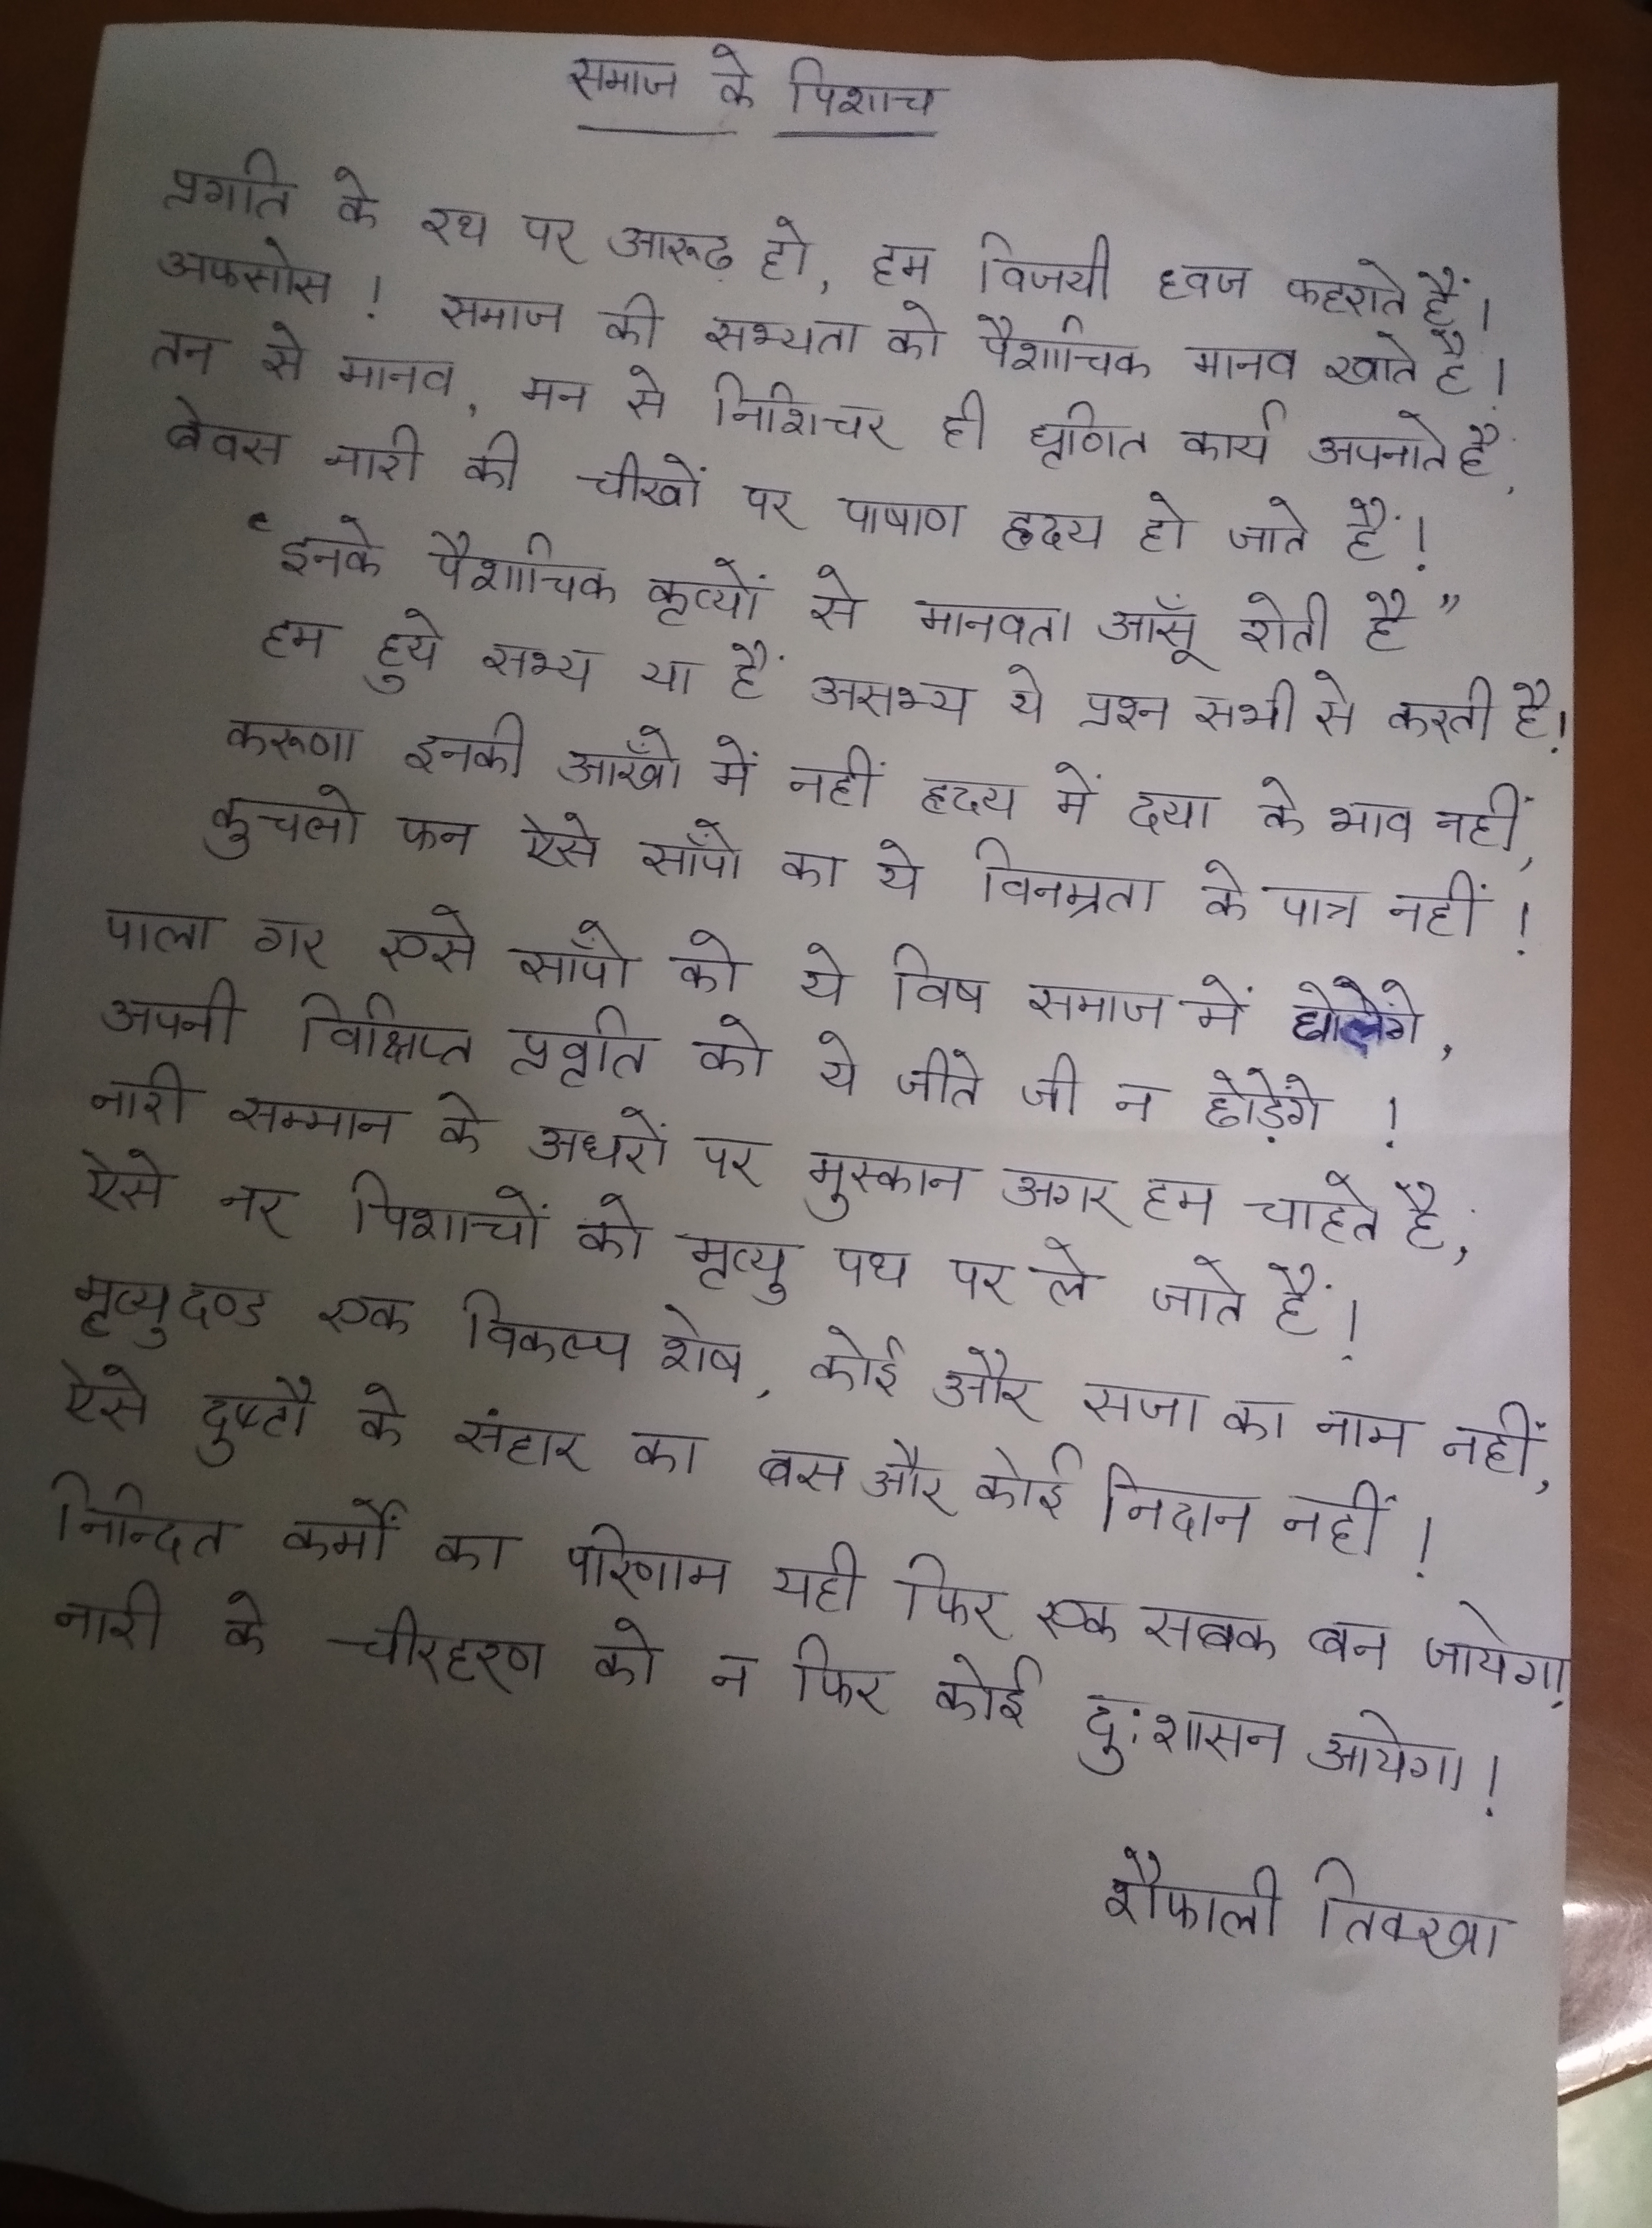 समाज के पिशाच
प्रगति के रथ पर आरूढ़ हो, हम विजयी ध्वज फहराते हैं।
अफसोस ! समाज की सभ्यता को पैशाचिक मानव खाते है।
तन से मानव, मन से निशिचर ही घृणित कार्य अपनाते है,
बेवस नारी की चीखों पर पाषाण हृदय हो जाते हैं !
"इनके पैशाचिक कृत्यों से मानवता आँसू रोती है"
हम हुये सभ्य या हैं असभ्य ये प्रश्न सभी से करती है!
करूणा इनकी आँखो में नहीं हृदय में दया के भाव नहीं,
कुचलो फन ऐसे साँपो का ये विनम्रता के पात्र नहीं !
पाला गर एसे साँपो को ये विष समाज में घोलेंगे,
अपनी विक्षिप्त प्रवृति को ये जीते जी न छोड़ेंगे !
नारी सम्मान के अधरों पर मुस्कान अगर हम चाहते है,
ऐसे नर पिशाचों को मृत्यु पथ पर ले जाते हैं!
मृत्युदण्ड एक विकल्प शेष, कोई और सजा का नाम नहीं,
ऐसे दुष्टौ के संहार का बस और कोई निदान नहीं !
निन्दित कर्मों का परिणाम यही फिर एक सबक बन जायेगा,
नारी के चीरहरण को न फिर कोई दु:शासन आयेगा!
शैफाली तिक्खा